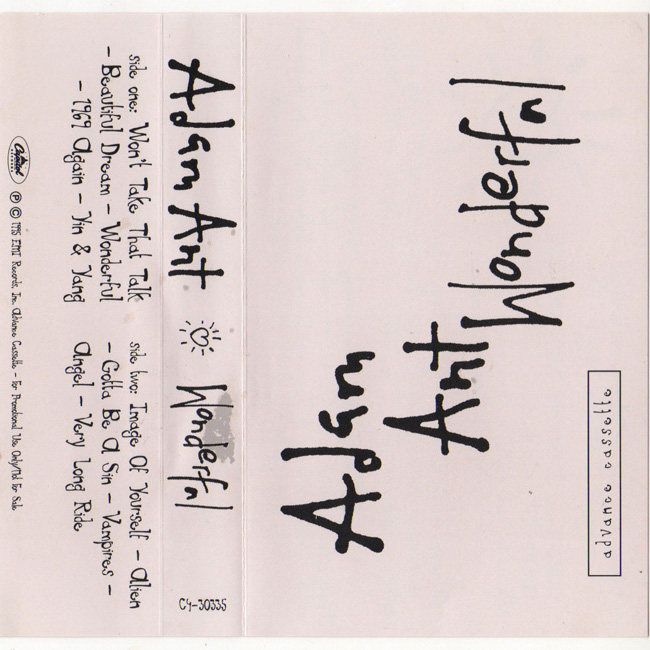 Adam
Ant
Wonderful
advance cassette
Adam Ant Wonderful C4-30335
side one: Won't Take That Talk
- Beautiful Dream - Wonderful
- 1969 Again - Yin & Yang
side two: Image Of Yourself - Alien
- Gotta Be A Sin - Vampires -
Angel - Very Long Ride
Capitol
℗ © 1995 EMI Records, Inc. Advance Cassette - For Promotional Use Only/Not For Sale